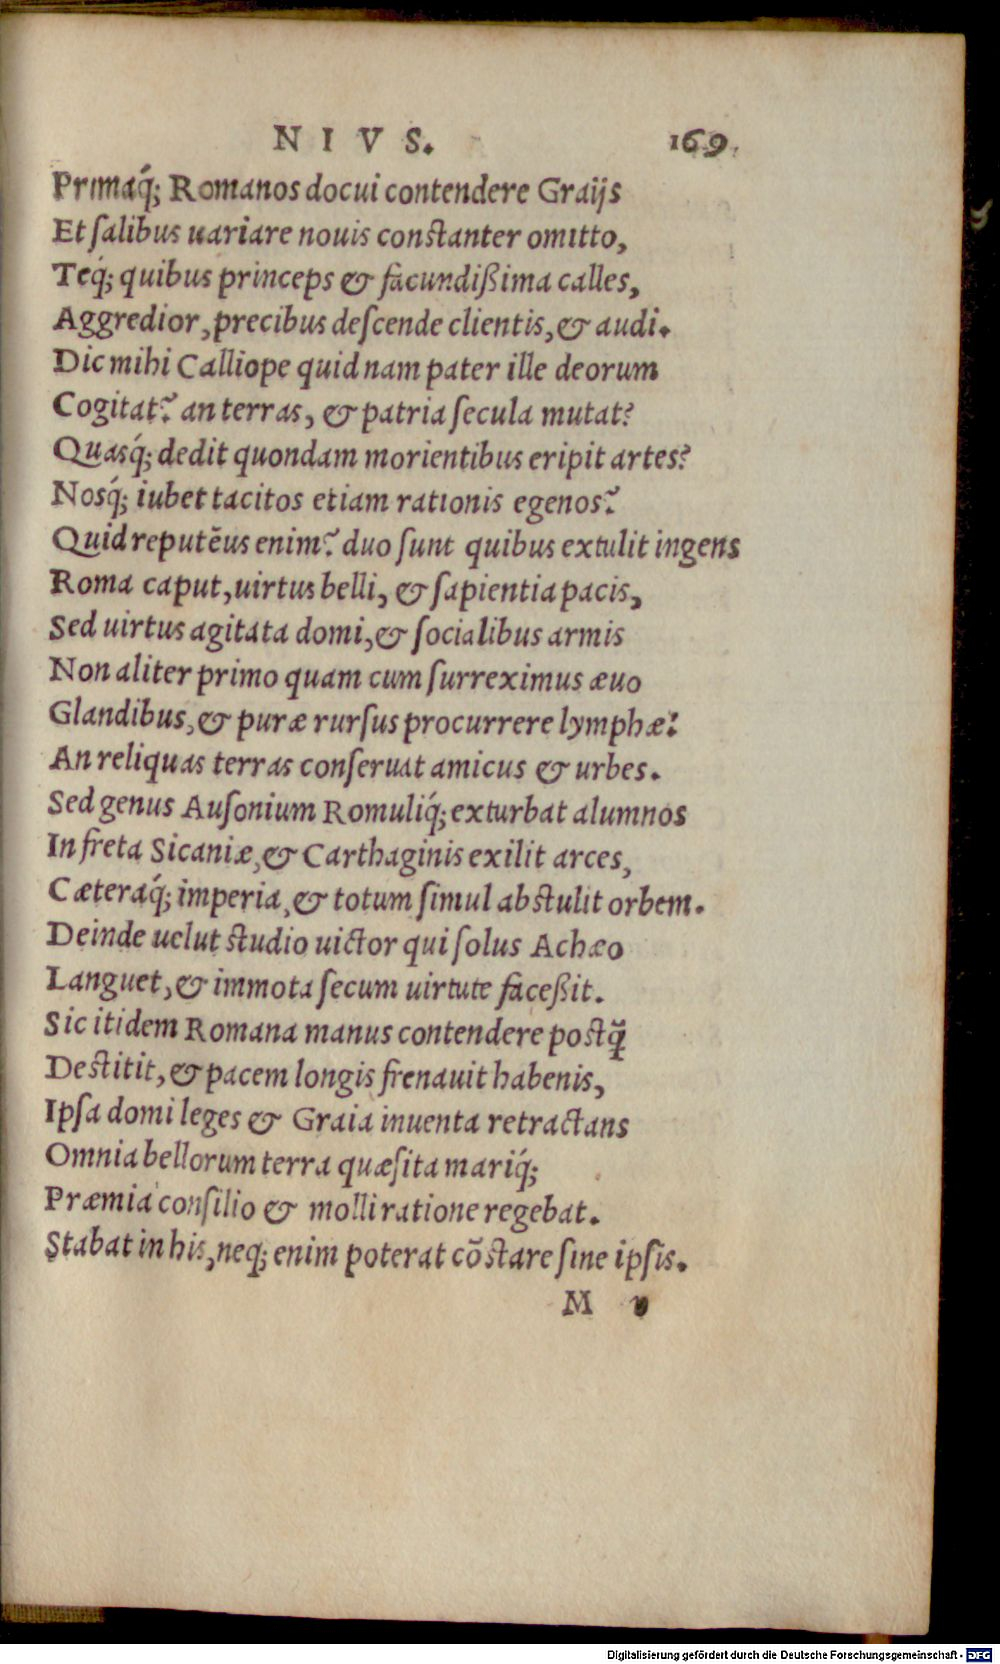 NIVS. 169
Primaq́; Romanos docui contendere Graijs
Et ſalibus uariare nouis conſtanter omitto,
Teq́; quibus princeps & facundißima calles,
Aggredior, precibus deſcende clientis, & audi.
Dic mihi Calliope quid nam pater ille deorum
Cogitat? an terras, & patria ſecula mutat?
Quasq́; dedit quondam morientibus eripit artes?
Nosq́; iubet tacitos etiam rationis egenos?
Quid reputēus enim? duo ſunt quibus extulit ingens
Roma caput, uirtus belli, & ſapientia pacis,
Sed uirtus agitata domi, & ſocialibus armis
Non aliter primo quam cum ſurreximus æuo
Glandibus, & puræ rurſus procurrere lymphæ?
An reliquas terras conſeruat amicus & urbes.
Sed genus Auſonium Romuliq́; exturbat alumnos
In freta Sicaniæ, & Carthaginis exilit arces,
Cæteraq́; imperia, & totum ſimul abſtulit orbem.
Deinde uelut ſtudio uictor qui ſolus Achæo
Languet, & immota ſecum uirtute faceßit.
Sic itidem Romana manus contendere poſtq̃
Deſtitit, & pacem longis frenauit habenis,
Ipſa domi leges & Graia inuenta retractans
Omnia bellorum terra quæſita mariq́;
Præmia conſilio & molli ratione regebat.
Stabat in his, neq; enim poterat cōſtare ſine ipſis.
M v
Digitalisierung gefördert durch die Deutsche Forschungsgemeinschaft - DFG